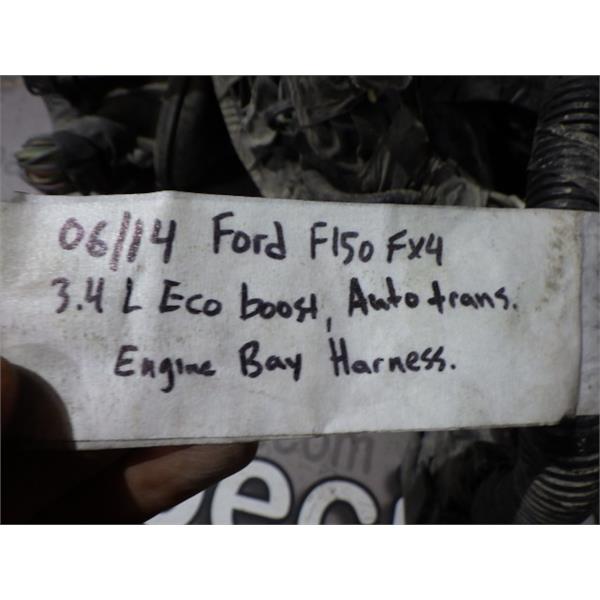 06/14 Ford F150 FX4
3.4 L Eco boost, Auto trans.
Engine Bay Harness.
.com